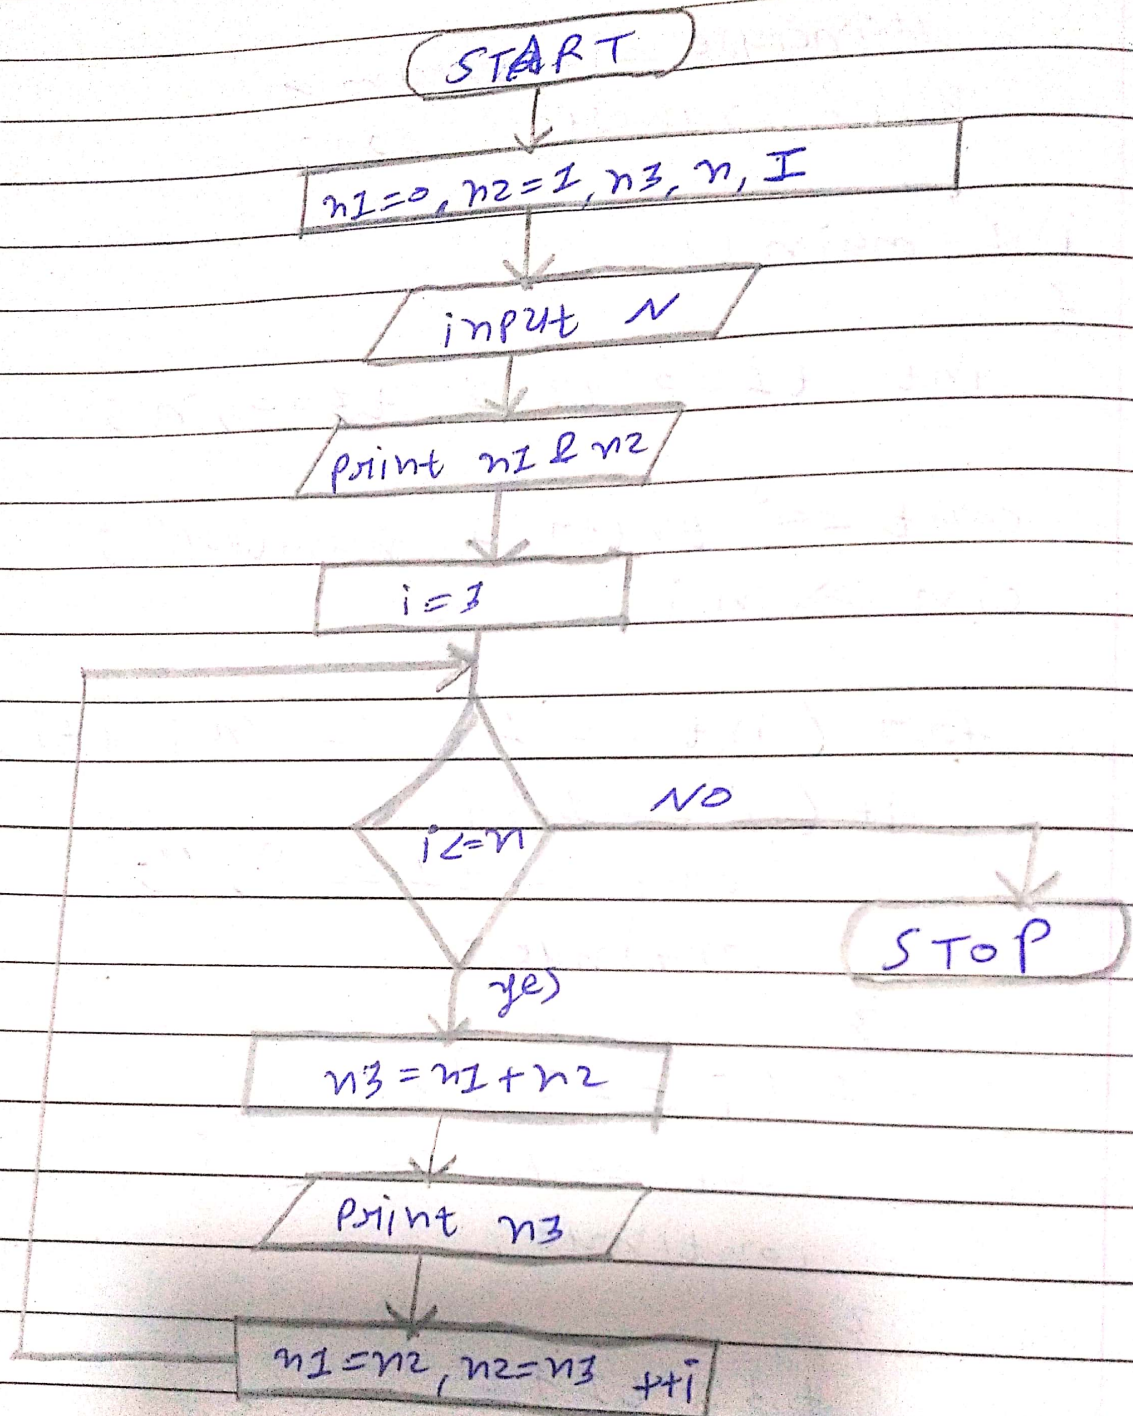 START
n1=0, n2=1, n3, n, I
input N
print n1 & n2
i=3
i<=n
NO
STOP
yes
n3=n1+n2
print n3
n1=n2, n2=n3 ++i